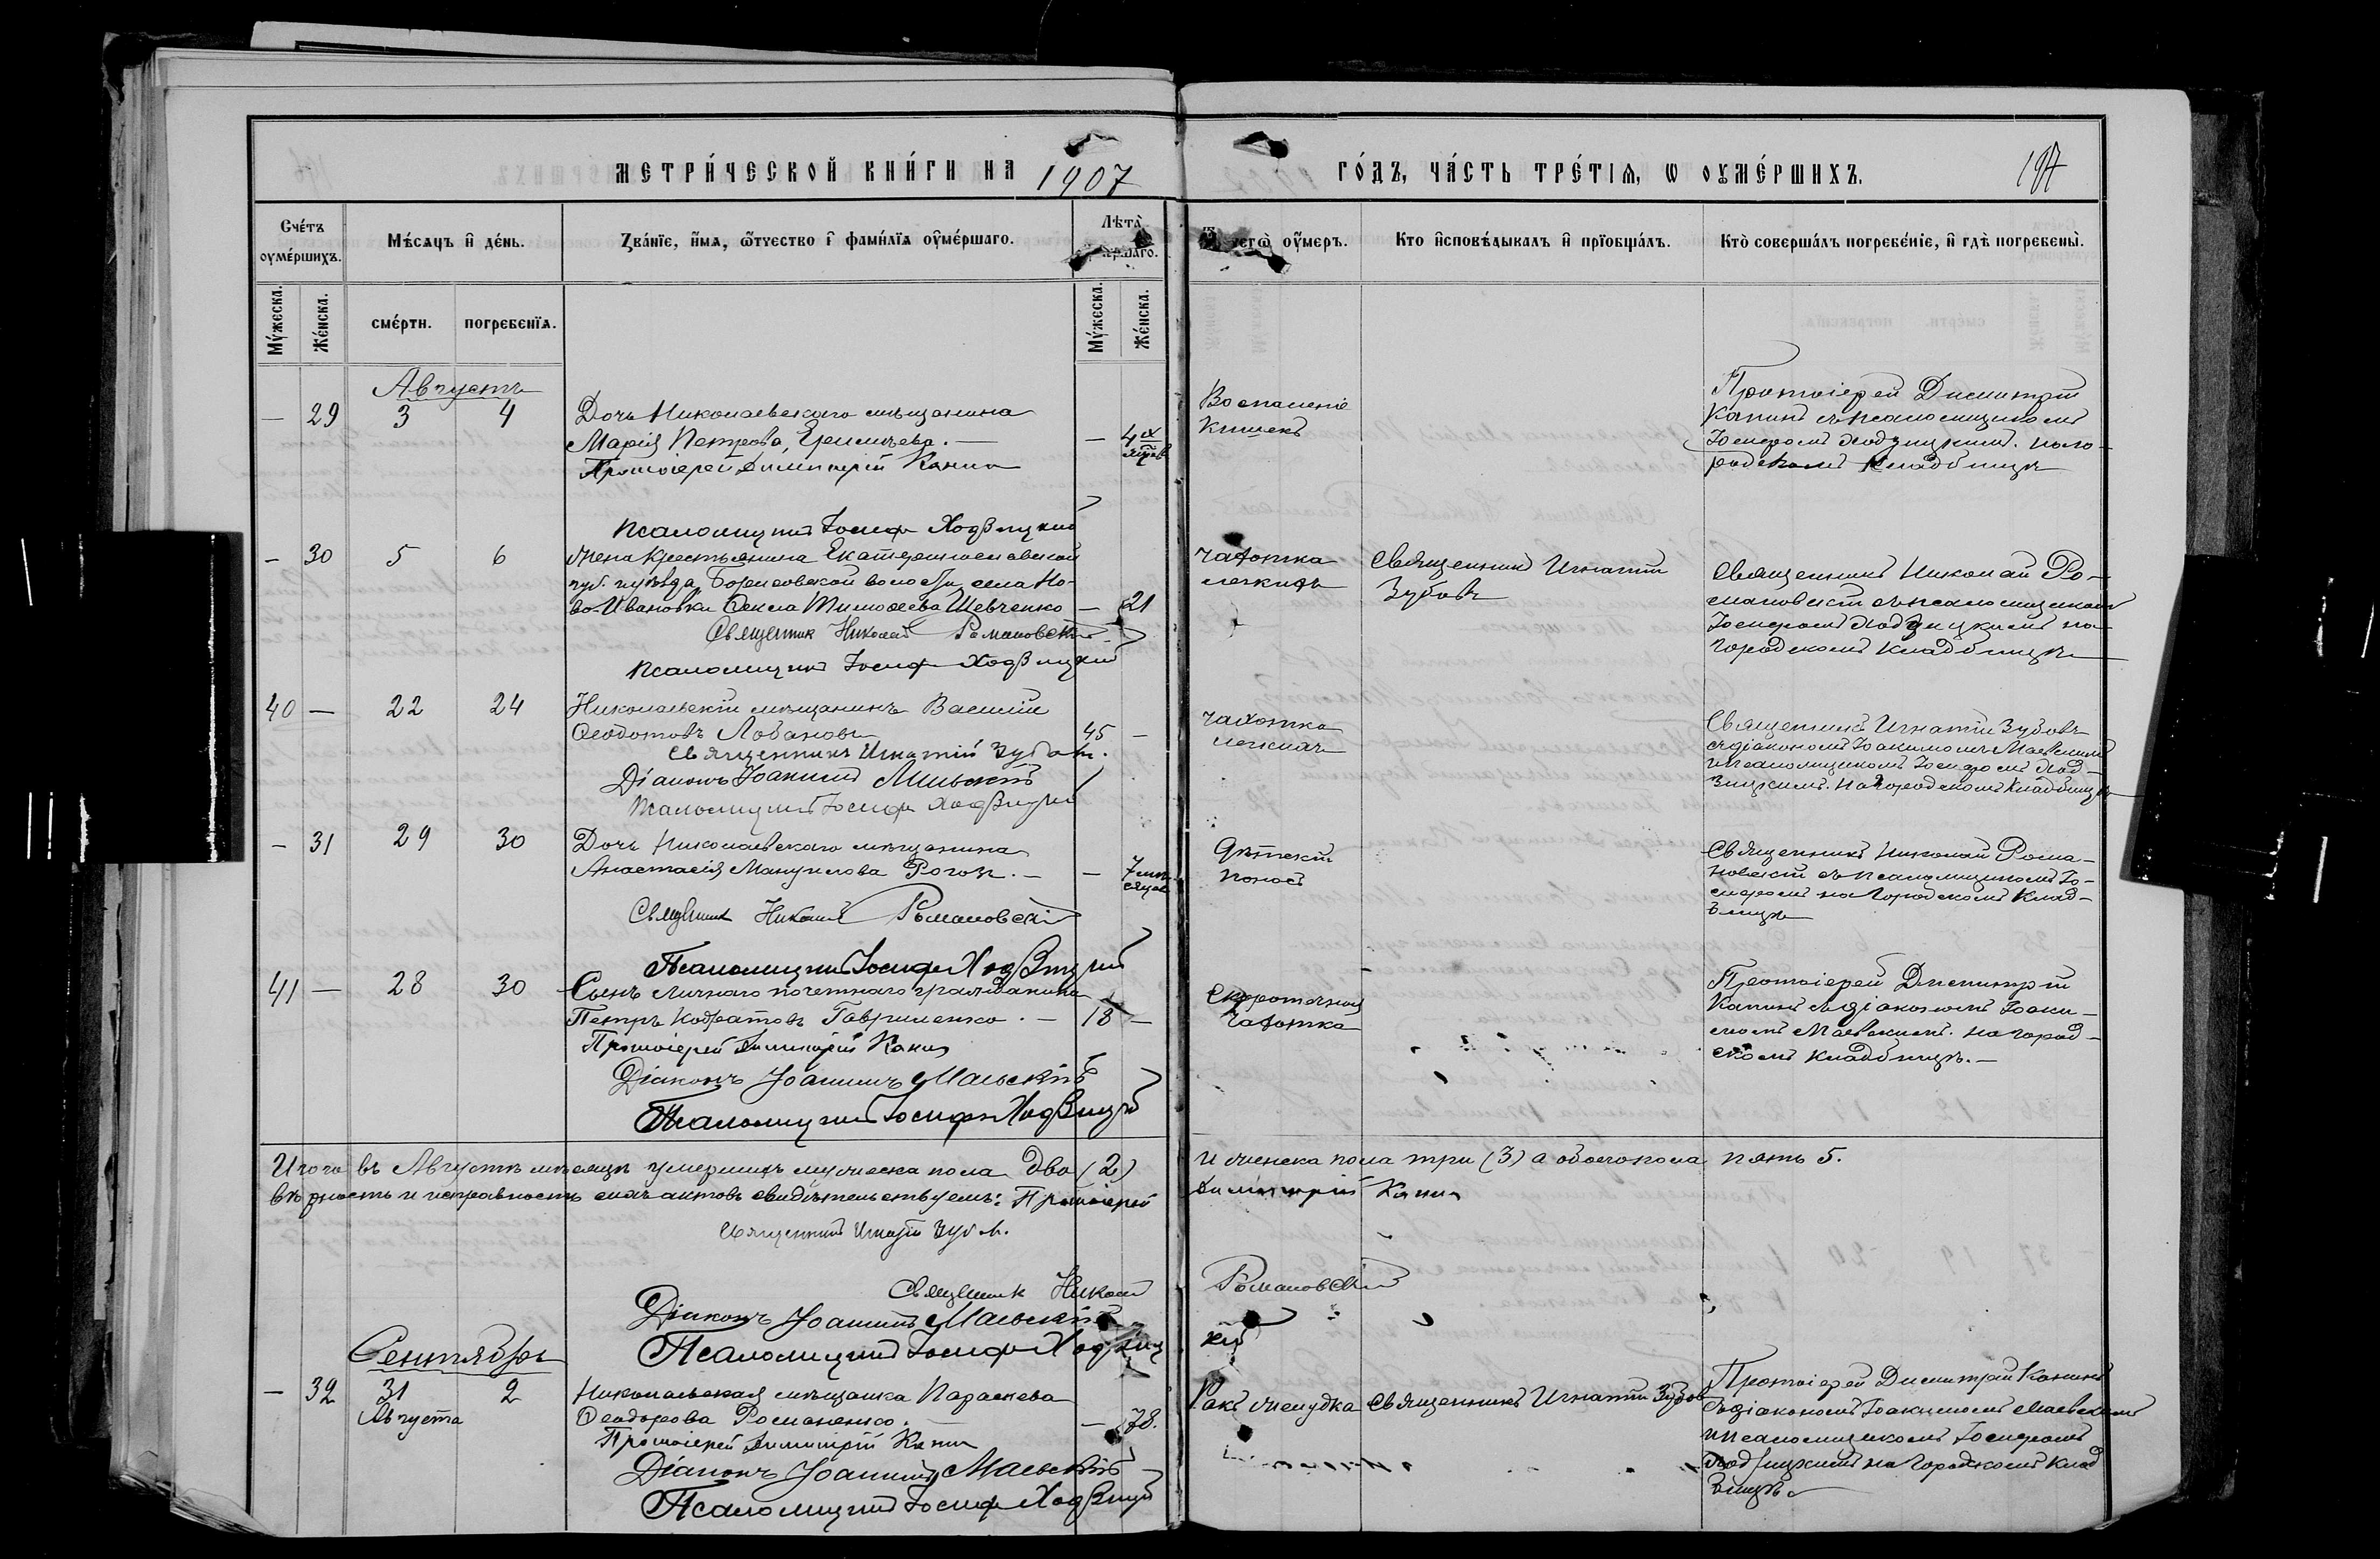 МЕТРИ́ЧЕСКОЙ КНИ́ГИ НА 1907
ГО́ДЪ, ЧА́СТЬ ТРЕ́ТІѦ, Ѡ ОУМЕ́РШИХЪ.
Сче́тъ оуме́ршихъ.
Мѣ́сѧцъ и҆ де́нь.
Зва́нїе, и҆́мѧ, ѻ҆́тчество и҆ фами́лїѧ оу҆ме́ршагѡ.
Лѣта̀
чегѡ̀ оу҆́меръ.
Кто и҆сповѣ́дывалъ и҆ прїѡбща́лъ.
Кто̀ соверша́лъ погребе́нїе, и҆ гдѣ̀ погребены̀.
Мꙋ́жеска.
Же́нска.
сме́рти.
погребенїѧ.
Мꙋ́жеска.
Же́нска.
Августъ
— 29 3 4
Дочь Николаевскаго мѣщанина
Марія Петрова,
Протоіерей Димитрій Канин
— 4
Воспаленіе
Кишекъ
Протоіерей Димитрій
Канинъ съ псаломщикомъ
Іосифомъ Ходзицкимъ. На го-
родскомъ Кладбищѣ
Псаломщикъ Іосифъ Ходзицкій
— 30 5 6
Жена крестьянина Екатеринославской
губ. и уѣзда, Борисовской волости, села Но-
во-Ивановки Ѳекла Тимоѳеева Шевченко — 21
Священник Николай Романовскій
Псаломщикъ Іосифъ Ходзицкій
Чахотка
легкихъ
Священникъ Игнатій
Зубовъ
Священникъ Николай Ро-
мановскій съ псаломщикомъ
Іосифомъ Ходзицкимъ на
Городскомъ Кладбищѣ
40 — 22 24
Николаевскій мѣщанинъ Василій
Ѳеодотовъ Лобановъ 45 —
Священникъ Игнатій Зубовъ.
Діаконъ Іоакимъ Маевскій
Псаломщикъ Іосифъ Ходзицкій
Чахотка
легкихъ
Священникъ Игнатій Зубовъ
съ діакономъ Іоакимомъ Маевскимъ
и псаломщикомъ Іосифомъ Ход-
зицкимъ. На городскомъ Кладбищѣ
— 31 29 30
Дочь Николаевскаго мѣщанина
Анастасія Мануилова Рогоз. — — 7 мѣ-
сяцев
Священник Николай Романовскій
Псаломщикъ Іосифъ Ходзицкій
Дѣтскій
поносъ
Священникъ Николай Рома-
новскій съ псаломщикомъ Іо-
сифомъ на Городскомъ Клад-
бищѣ
41 — 28 30
Сынъ личнаго почетнаго гражданина
Петръ Кодратовъ Гавриленко. — 18 —
Протоіерей Димитрій Канин
Діаконъ Іоакимъ Маевскій
Псаломщикъ Іосифъ Ходзицкій
Скоротечная
Чахотка
Протоіерей Димитрій
Канинъ съ діакономъ Іоаки-
момъ Маевскимъ. на город-
скомъ кладбищѣ. —
Итого въ Августѣ мѣсяцѣ умершихъ мужеска пола два (2) и женска пола три (3) а обоего пола пять 5.
вѣрность и исправность сихъ актовъ свидѣтельствуемъ: Протоіерей Димитрій Канин
Священникъ Игнатій Зубов.
Священник Николай Романовскій
Діаконъ Іоакимъ Маевскій
Псаломщикъ Іосифъ Ходзицкій
Сентябрь
— 32 31 2
Августа
Николаевская мѣщанка Параскева
Ѳеодорова Романенко. — — 78.
Протоіерей Димитрій Канин
Діаконъ Іоакимъ Маевскій
Псаломщикъ Іосифъ Ходзицкій
Ракъ желудка
Священникъ Игнатій Зубовъ
Протоіерей Димитрій Канинъ
съ діакономъ Іоакимомъ Маевскимъ
и псаломщикомъ Іосифомъ
Ходзицкимъ на Городскомъ Клад
бищѣ